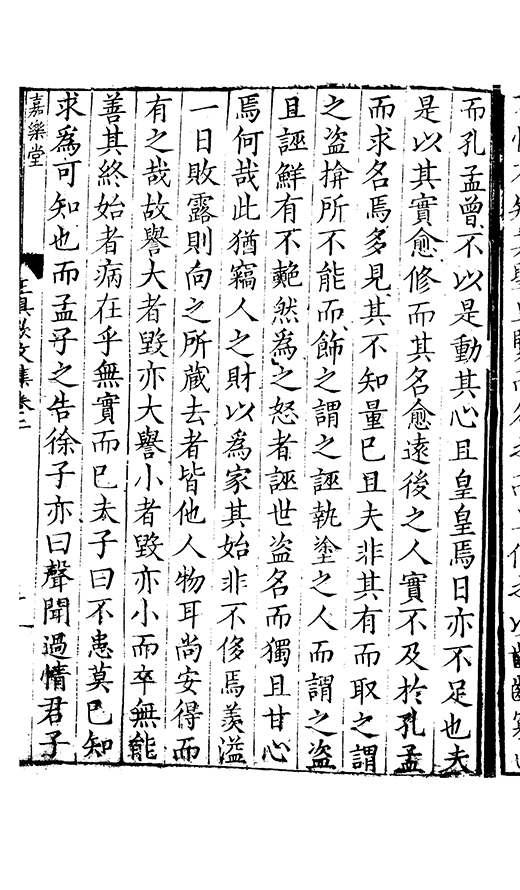 而孔孟曾不以是動其心且皇皇焉日亦不足也夫
是以其實愈修而其名愈遠後之人實不及於孔孟
而求名焉多見其不知量已且夫非其有而取之謂
之盗揜所不能而飾之謂之誣執塗之人而謂之盗
且誣鮮有不艴然為之怒者誣世盗名而獨且甘心
焉何哉此猶竊人之財以為家其始非不侈焉羨溢
一日敗露則向之所藏去者皆他人物耳尚安得而
有之哉故譽大者毀亦大譽小者毀亦小而卒無能
善其終始者病在乎無實而已夫子曰不患莫已知
求為可知也而孟子之告徐子亦曰聲聞過情君子
嘉樂堂
文集卷二